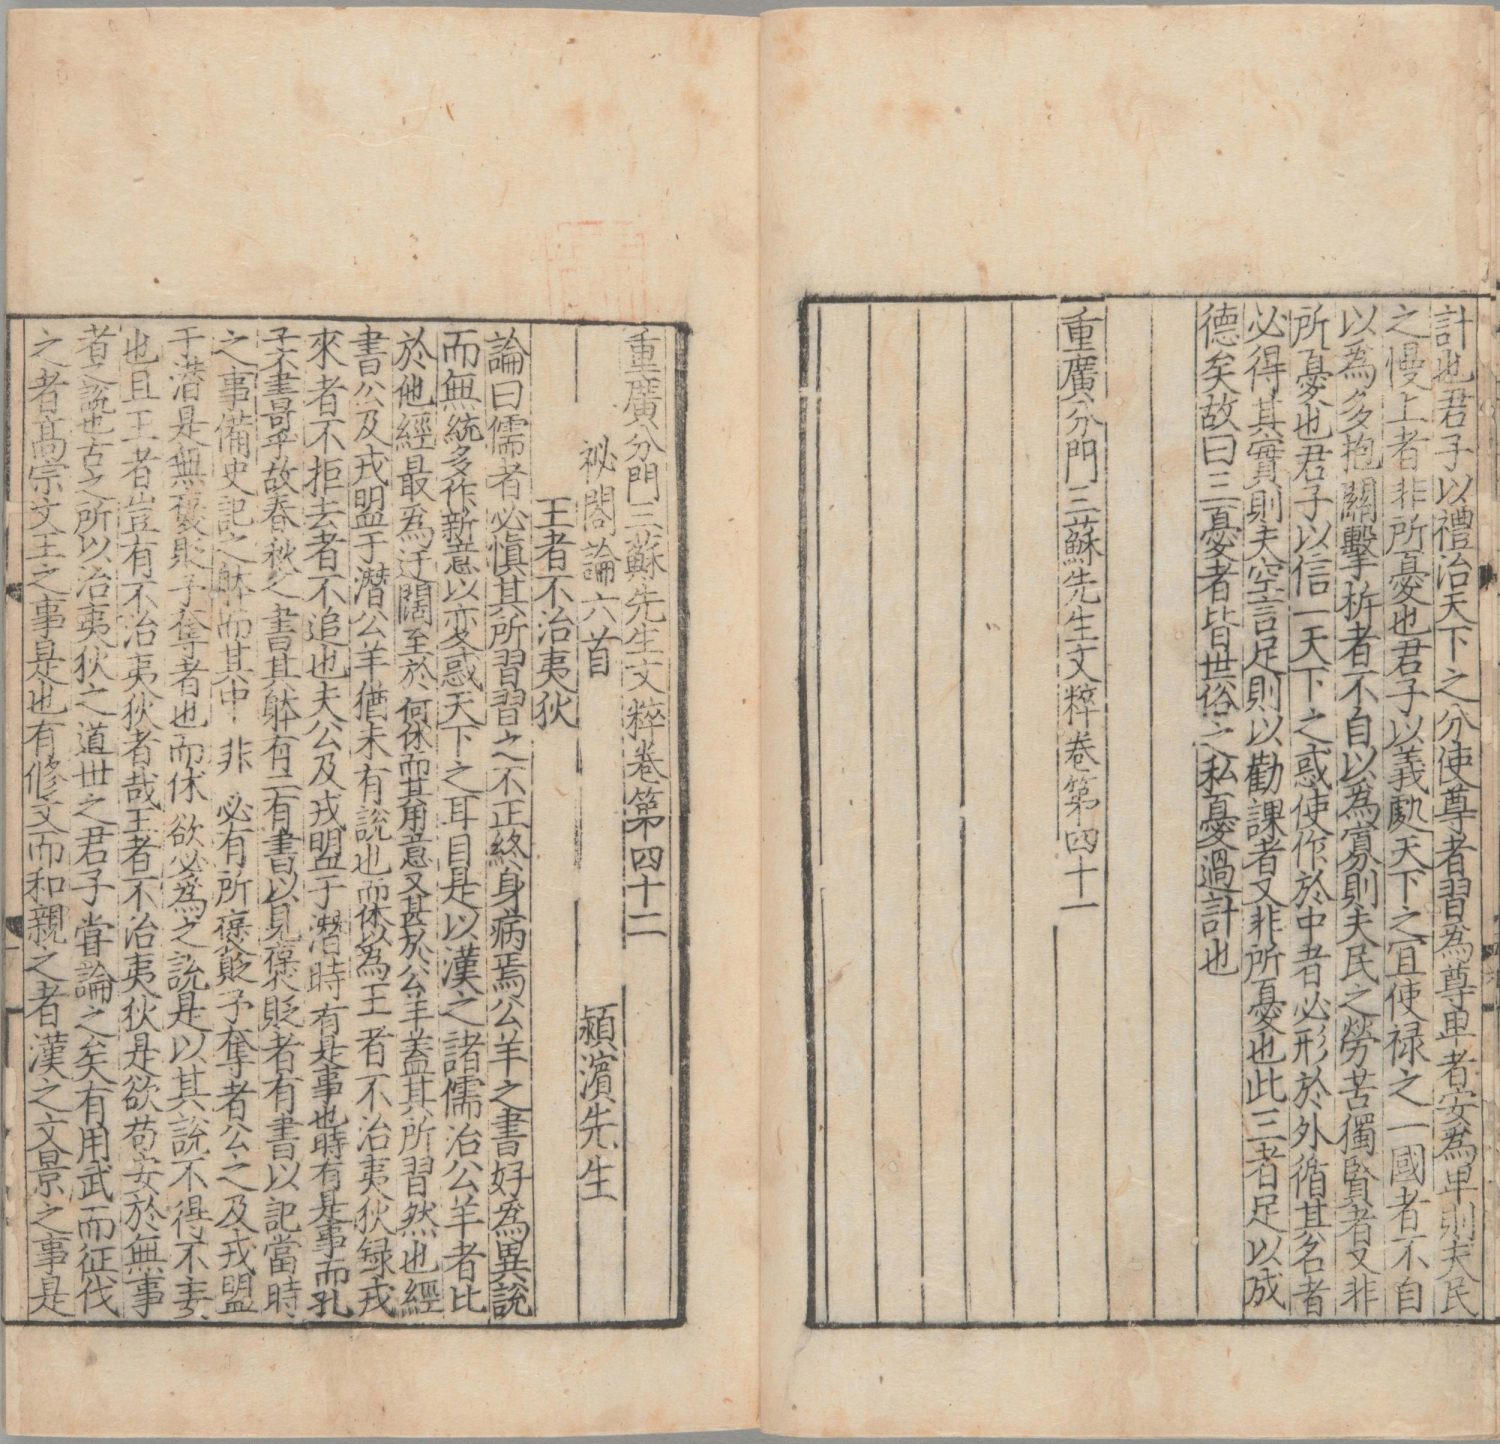 計也君子以禮治天下之分使尊者習為尊卑者安為卑則夫民
之慢上者非所憂也君子以義處天下之宜使禄之一國者不自
以為多抱關擊柝者不自以為寡則夫民之勞苦獨賢者又非
所憂也君子以信一天下之惑使作於中者必形於外循其名者
必得其實則夫空言足則以勸課者又非所憂也此三者足以成
德矣故曰三憂者皆世俗之私憂過計也
重廣分門三蘇先生文粹卷第四十一
重廣分門三蘇先生文粹卷第四十二
祕閣論六首 潁濱先生
王者不治夷狄
論曰儒者必慎其所習習之不正終身病焉公羊之書好為異說
而無統多作新意以变惑天下之耳目是以漢之諸儒治公羊者比
於他經最為迂闊至於何休而其用意又甚於公羊蓋其所習然也經
書公及戎盟于潛公羊猶未有說也而休以為王者不治夷狄録戎
來者不拒去者不追也夫公及戎盟于潛時有是事也時有是事而孔
子不書可乎故春秋之書其躰有二有書以見褒貶者有書以記當時
之事備史記之躰而其中非必有所褒貶予奪者公之及戎盟
于潛是無褒貶予奪者也而休欲必為之說是以其說不得不妄
也且王者豈有不治夷狄者哉王者不治夷狄是欲苟安於無事
者之說也古之所以治夷狄之道世之君子嘗論之矣有用武而征伐
之者髙宗文王之事是也有修文而和親之者漢之文景之事是